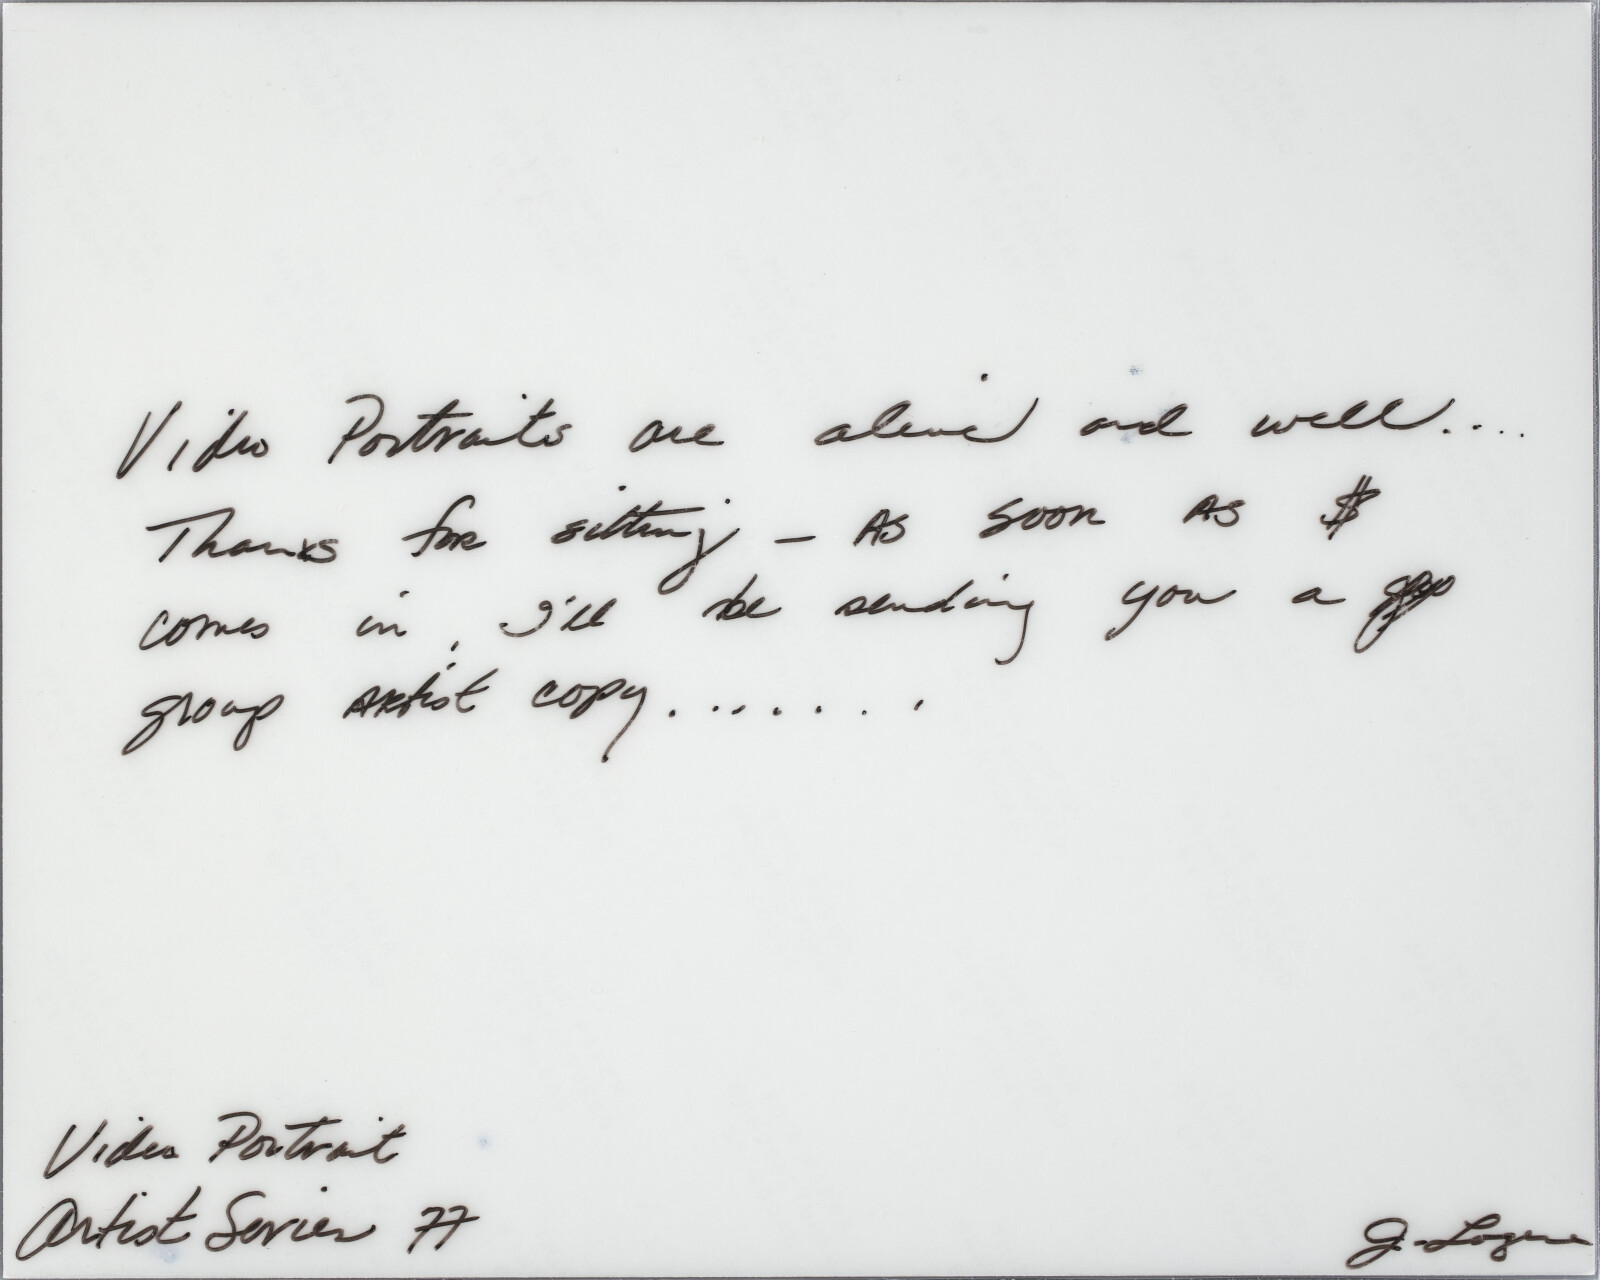 Video Portraits are alive and well....
Thanks for sitting – As soon as $
comes in, I'll be sending you a
group artist copy........
Video Portrait
Artist Series 77
J.